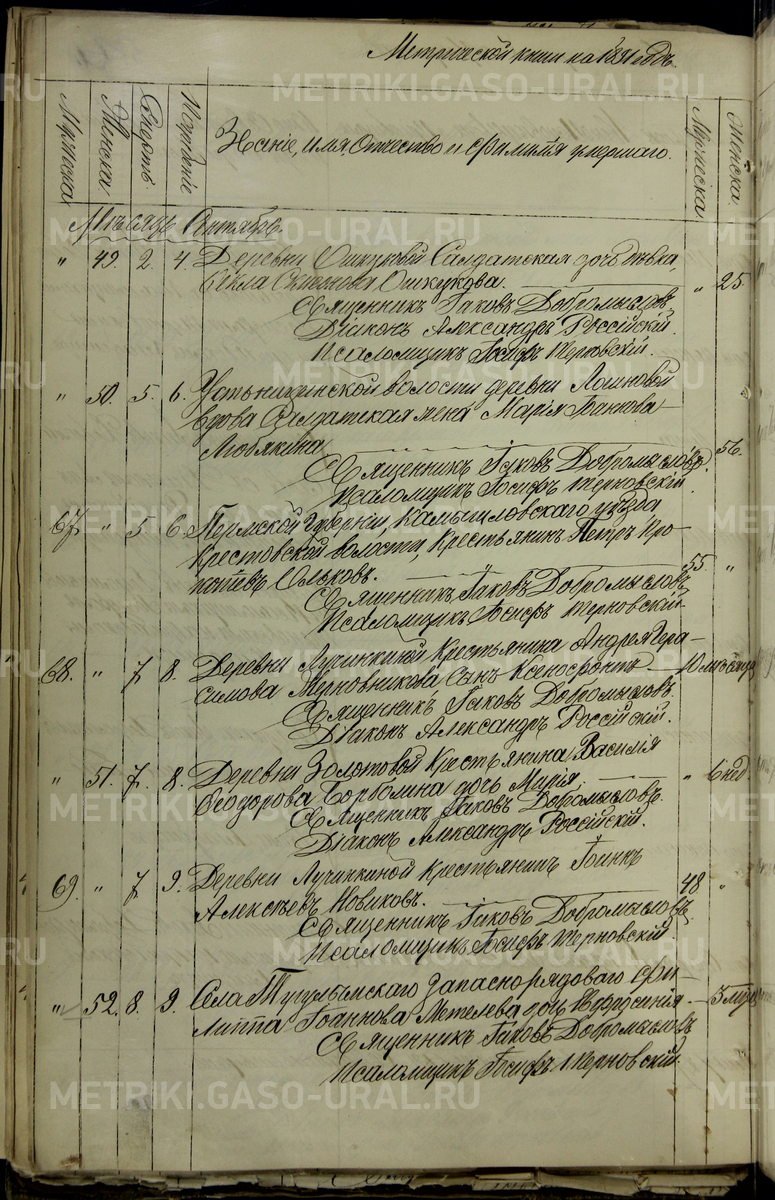 Метрической книги на 1891 годъ.
Мужеска Женска Смерть Погребеніе Званіе, имя, отчество и фамилія умершаго. Мужеска Женска
Мѣсяцъ Октябрь.
" 49. 2. 4. Деревни Ошкуковой Салдатская дочь дѣвка,
Ѳекла Ошкукова. " 25
Священникъ Іаковъ Добромысловъ
Діаконъ Александръ Россійскій.
Псаломщикъ Іосифъ Терновскій.
" 50. 5. 6. волости деревни Логиновой
вдова Салдатская жена Марія Іоаннова
Любякина 56.
Священникъ Іаковъ Добромысловъ.
Псаломщикъ Іосифъ Терновскій
67. " 5 6. Пермской губерніи, Камышловскаго уѣзда
Крестовской волости, Крестьянинъ Петръ Про-
Ольковъ. 55 "
Священникъ Іаковъ Добромысловъ
Псаломщикъ Іосифъ Терновскій
68. " 7 8. Деревни Лучинкиной Крестьянина Андрея Гера-
симова сынъ Ксенофонтъ 10 мѣсяц
Священникъ Іаковъ Добромысловъ.
Діаконъ Александръ Россійскій.
" 51. 7. 8. Деревни Золотовой Крестьянина Василія
Ѳеодорова дочь Марія. " 6 нед.
Священникъ Іаковъ Добромысловъ.
Діаконъ Александръ Россійскій.
69. " 7 9. Деревни Лучинкиной Крестьянинъ Іоаннъ
Алексѣевъ Новиковъ. 48 "
Священникъ Іаковъ Добромысловъ
Псаломщикъ Іосифъ Терновскій
" 52. 8. 9. Села Тугулымскаго запаснорядоваго Фи-
липпа Іоаннова Метелева дочь Евфросинія 5
Священникъ Іаковъ Добромысловъ
Псаломщикъ Іосифъ Терновскій.
METRIKI.GASO-URAL.RU